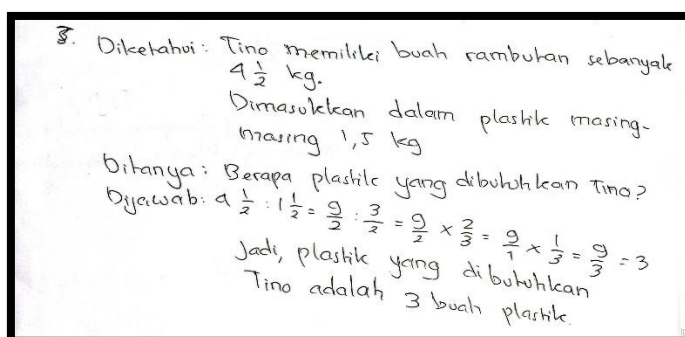 3. Diketahui: Tino memiliki buah rambutan sebanyak
4 1/2 kg.
Dimasukkan dalam plastik masing-
masing 1,5 kg
Ditanya: Berapa plastik yang dibutuhkan Tino?
Dijawab: 4 1/2 : 1 1/2 = 9/2 : 3/2 = 9/2 × 2/3 = 9/1 × 1/3 = 9/3 = 3
Jadi, plastik yang dibutuhkan
Tino adalah 3 buah plastik.